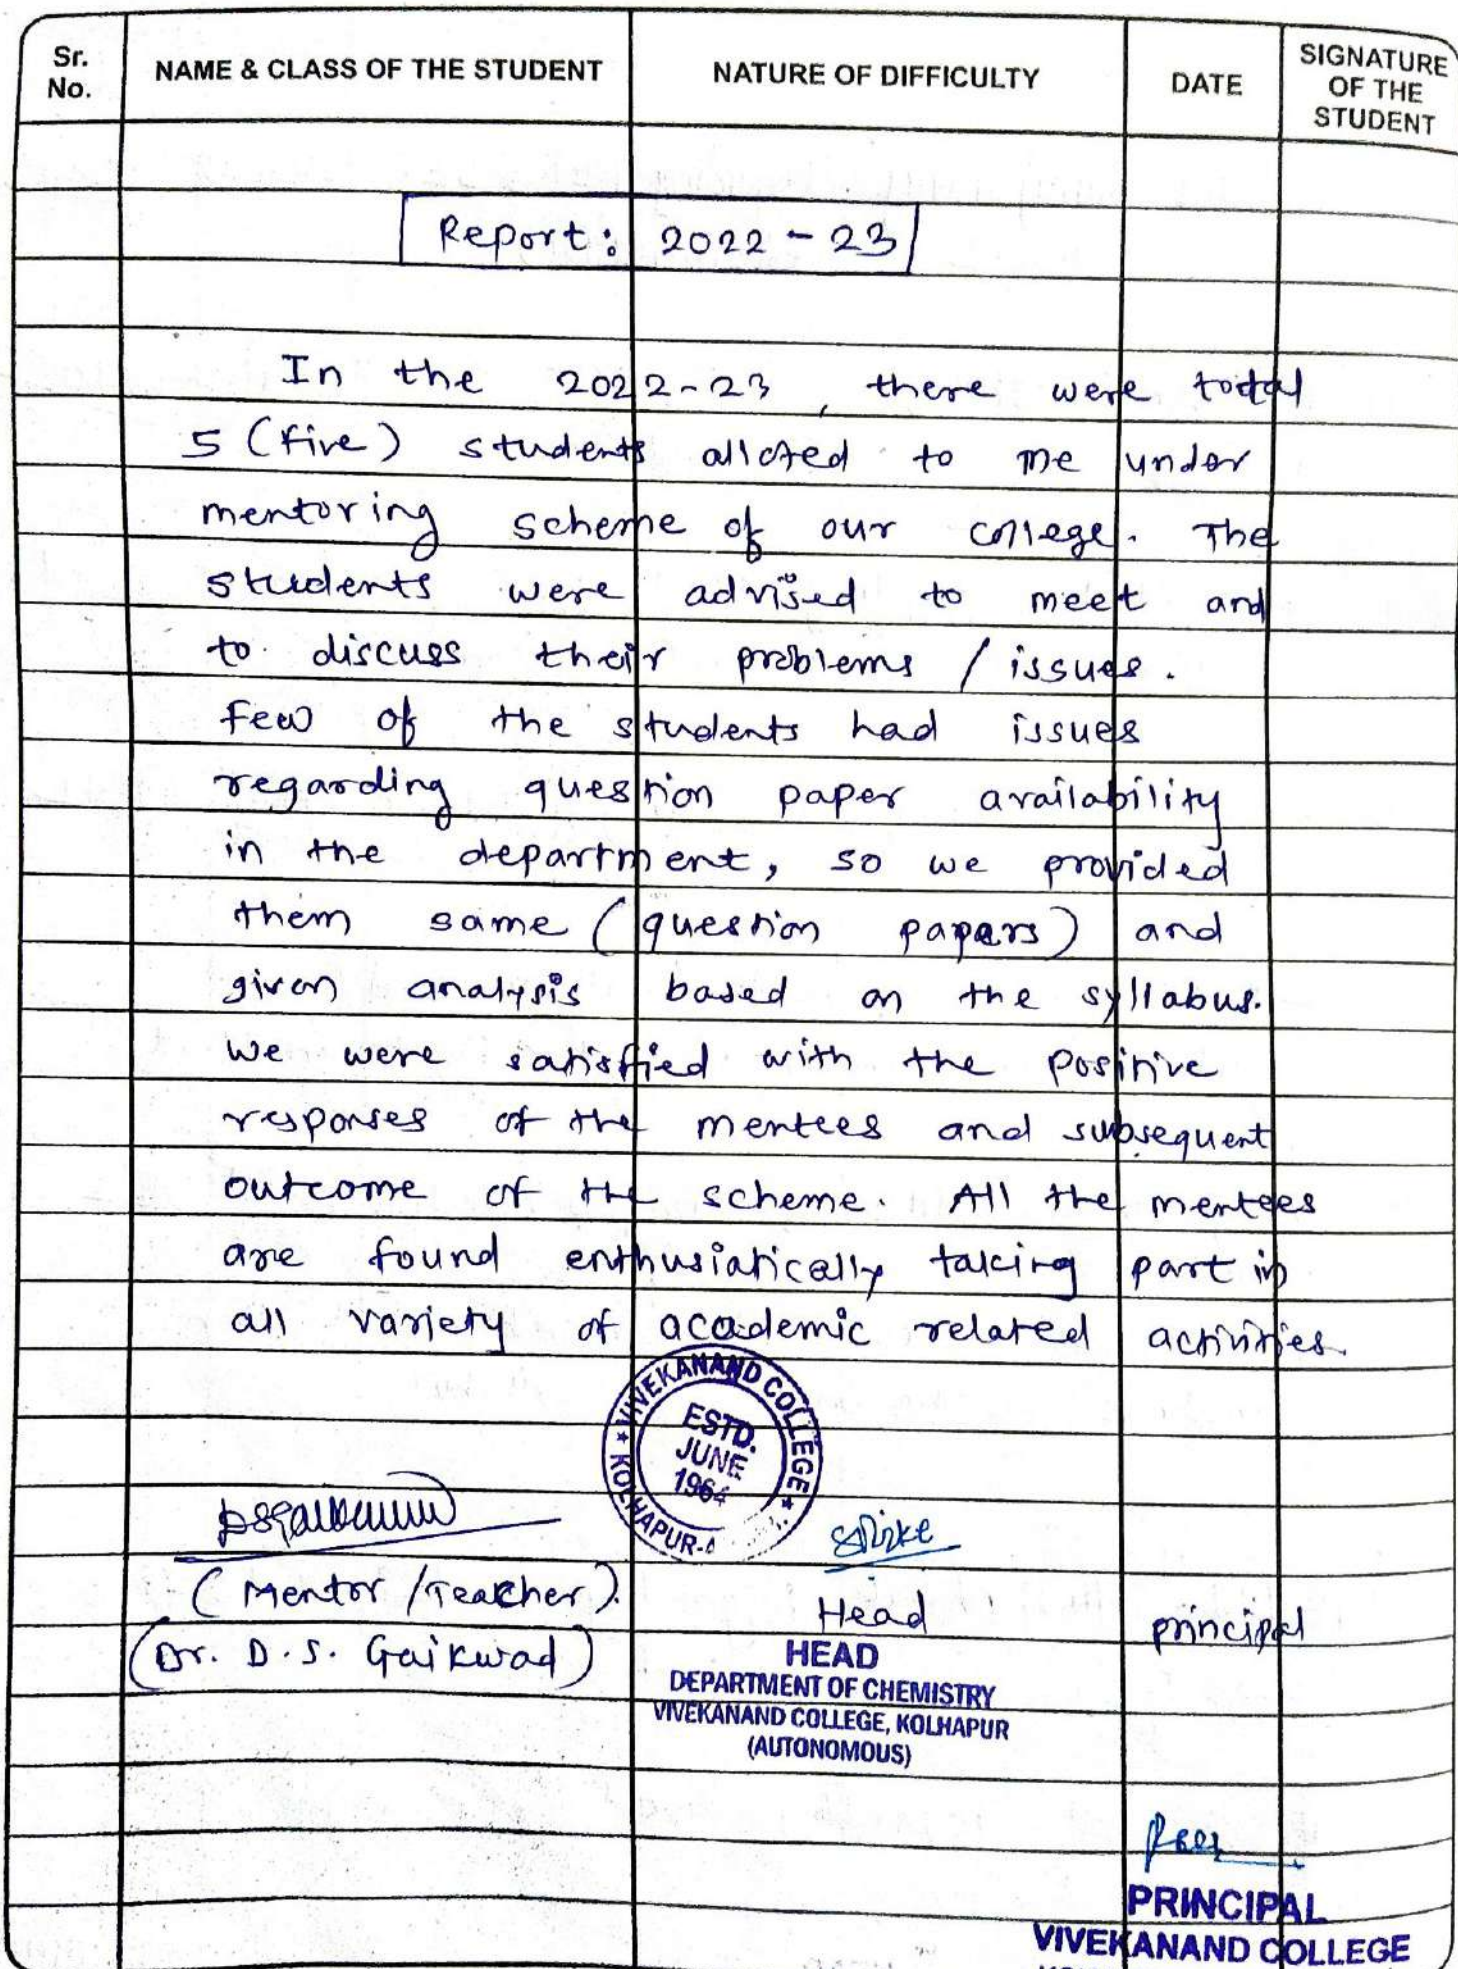 Sr. No.
NAME & CLASS OF THE STUDENT
NATURE OF DIFFICULTY
DATE
SIGNATURE OF THE STUDENT
Report: 2022-23
In the 2022-23, there were total
5 (five) students alloted to me under
mentoring scheme of our college. The
students were advised to meet and
to discuss their problems / issues.
Few of the students had issues
regarding question paper availability
in the department, so we provided
them same (question papers) and
given analysis based on the syllabus.
We were satisfied with the positive
responses of the mentees and subsequent
outcome of the scheme. All the mentees
are found enthusiatically taking part in
all variety of academic related activities.
VIVEKANAND COLLEGE
ESTD.
JUNE
1964
KOLHAPUR
(Mentor/Teacher).
(Dr. D.S. Gaikwad)
Head
HEAD
DEPARTMENT OF CHEMISTRY
VIVEKANAND COLLEGE, KOLHAPUR
(AUTONOMOUS)
principal
PRINCIPAL
VIVEKANAND COLLEGE